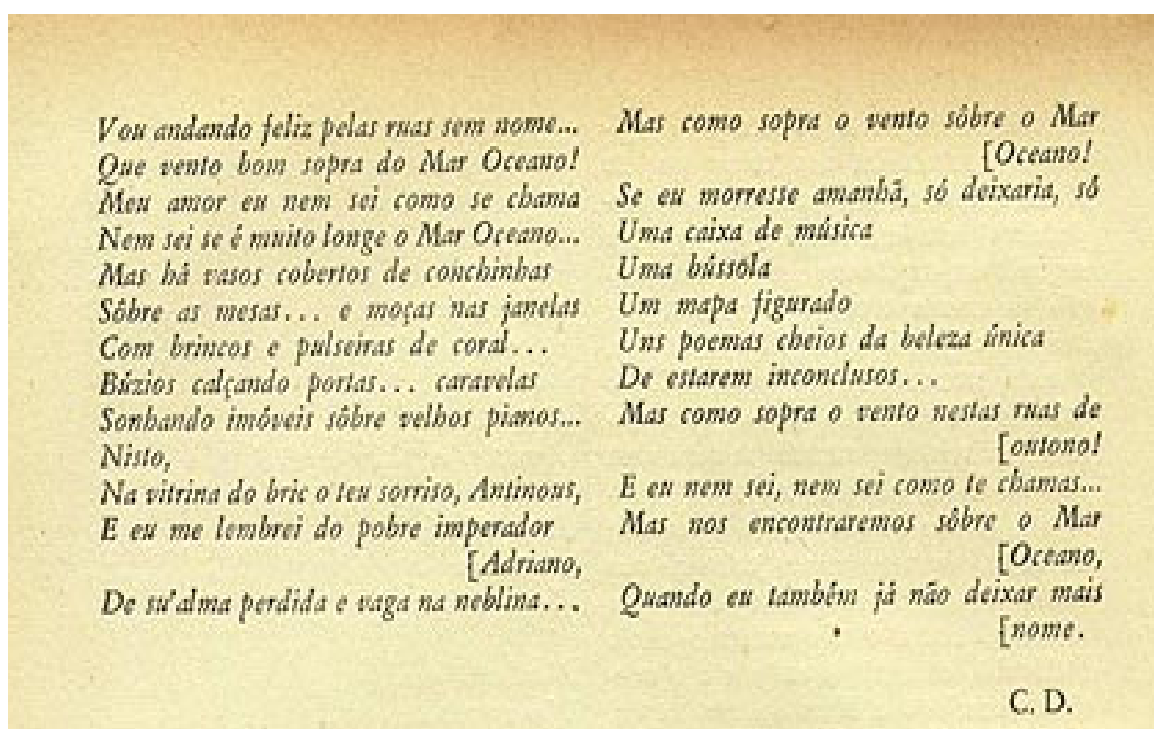 Vou andando feliz pelas ruas sem nome...
Que vento bom sopra do Mar Oceano!
Meu amor eu nem sei como se chama
Nem sei se é muito longe o Mar Oceano...
Mas há vasos cobertos de conchinhas
Sôbre as mesas... e moças nas janelas
Com brincos e pulseiras de coral...
Búzios calçando portas... caravelas
Sonhando imóveis sôbre velhos pianos...
Nisto,
Na vitrina do bric o teu sorriso, Antinous,
E eu me lembrei do pobre imperador
[Adriano,
De su'alma perdida e vaga na neblina...
Mas como sopra o vento sôbre o Mar
[Oceano!
Se eu morresse amanhã, só deixaria, só
Uma caixa de música
Uma bússola
Um mapa figurado
Uns poemas cheios da beleza única
De estarem inconclusos...
Mas como sopra o vento nestas ruas de
[outono!
E eu nem sei, nem sei como te chamas...
Mas nos encontraremos sôbre o Mar
[Oceano,
Quando eu também já não deixar mais
[nome.
C. D.